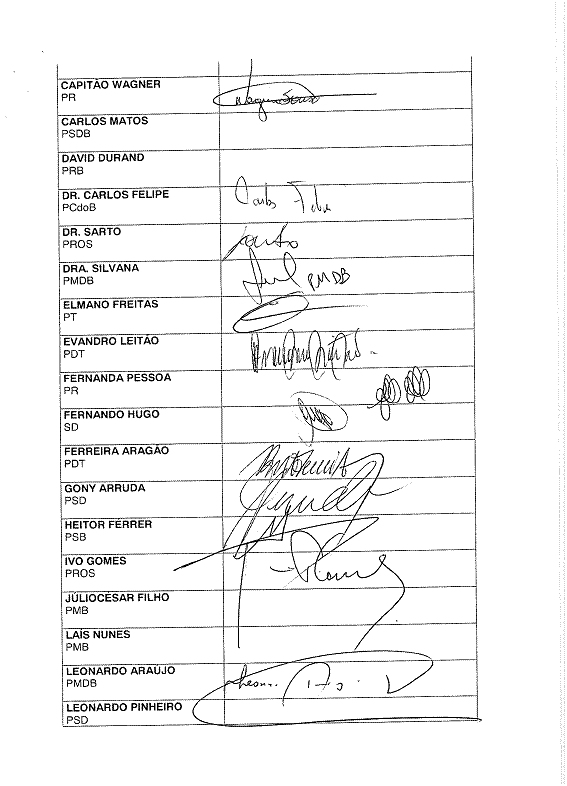 CAPITÃO WAGNER
PR
CARLOS MATOS
PSDB
DAVID DURAND
PRB
DR. CARLOS FELIPE
PCdoB
Carlos Felipe
DR. SARTO
PROS
Sarto
DRA. SILVANA
PMDB
PMDB
ELMANO FREITAS
PT
EVANDRO LEITÃO
PDT
FERNANDA PESSOA
PR
FERNANDO HUGO
SD
FERREIRA ARAGÃO
PDT
GONY ARRUDA
PSD
HEITOR FÉRRER
PSB
IVO GOMES
PROS
JÚLIOCÉSAR FILHO
PMB
LAÍS NUNES
PMB
LEONARDO ARAÚJO
PMDB
LEONARDO PINHEIRO
PSD